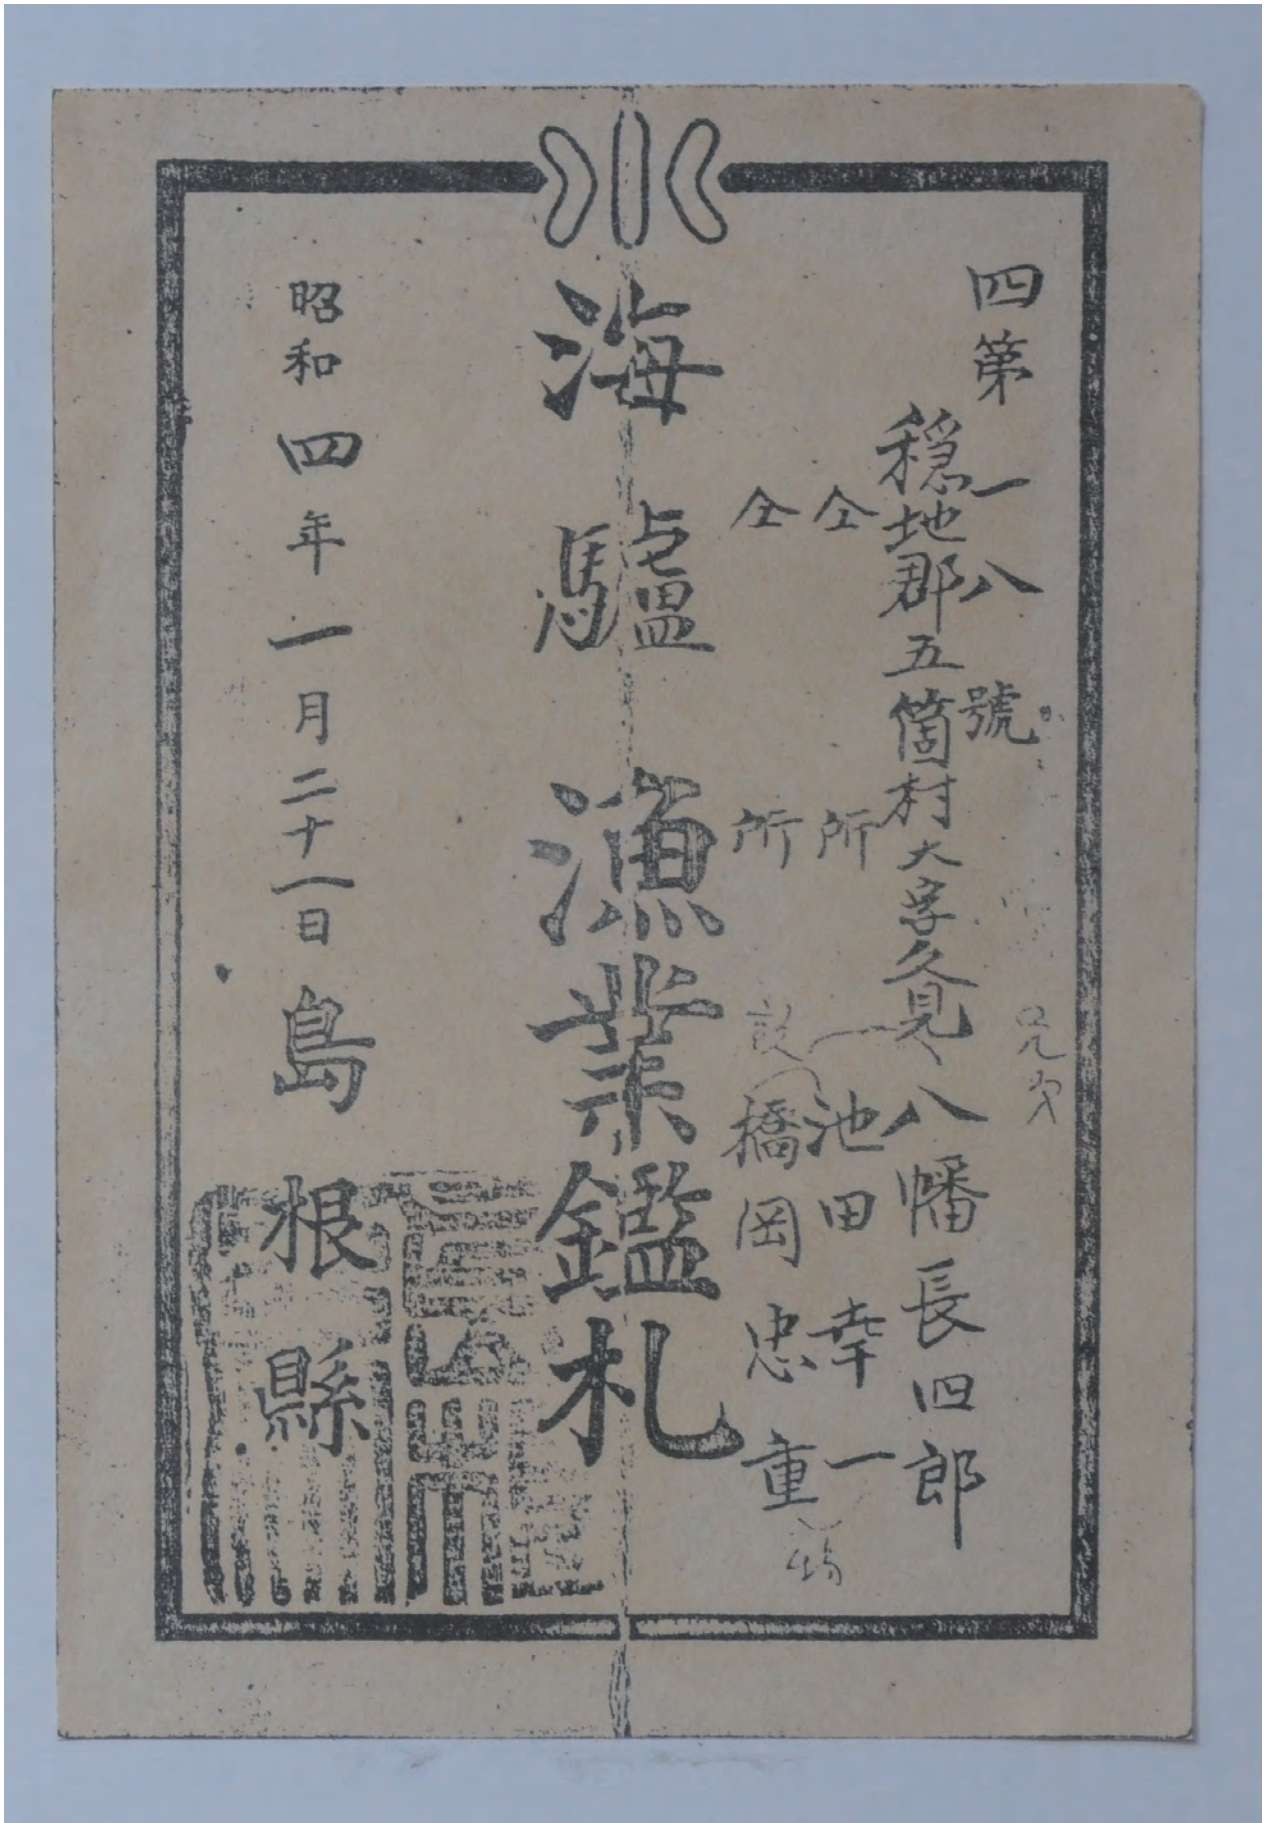 四第一八號
穏地郡五箇村大字久見 八幡長四郎
仝所 池田幸一
仝所 橋岡忠重
海驢漁業鑑札
昭和四年一月二十一日
島根縣